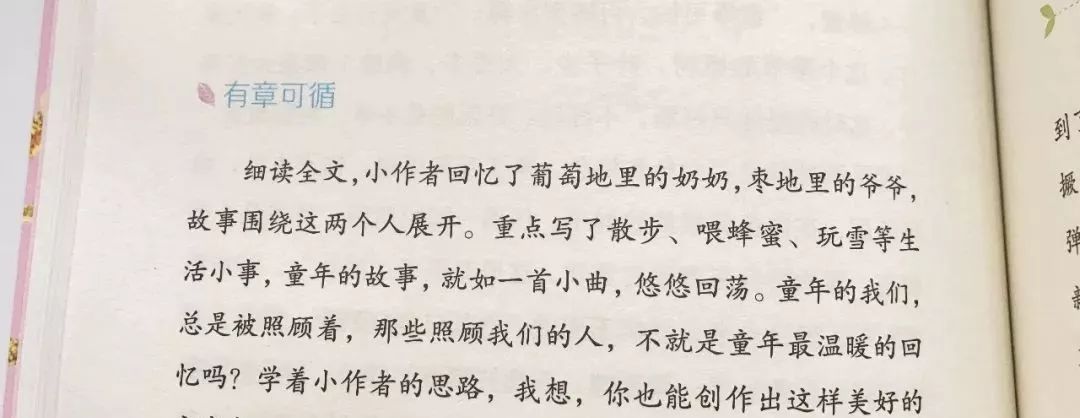 有章可循
细读全文,小作者回忆了葡萄地里的奶奶,枣地里的爷爷,
故事围绕这两个人展开。重点写了散步、喂蜂蜜、玩雪等生
活小事,童年的故事,就如一首小曲,悠悠回荡。童年的我们,
总是被照顾着,那些照顾我们的人,不就是童年最温暖的回
忆吗?学着小作者的思路,我想,你也能创作出这样美好的
到
撅
弹